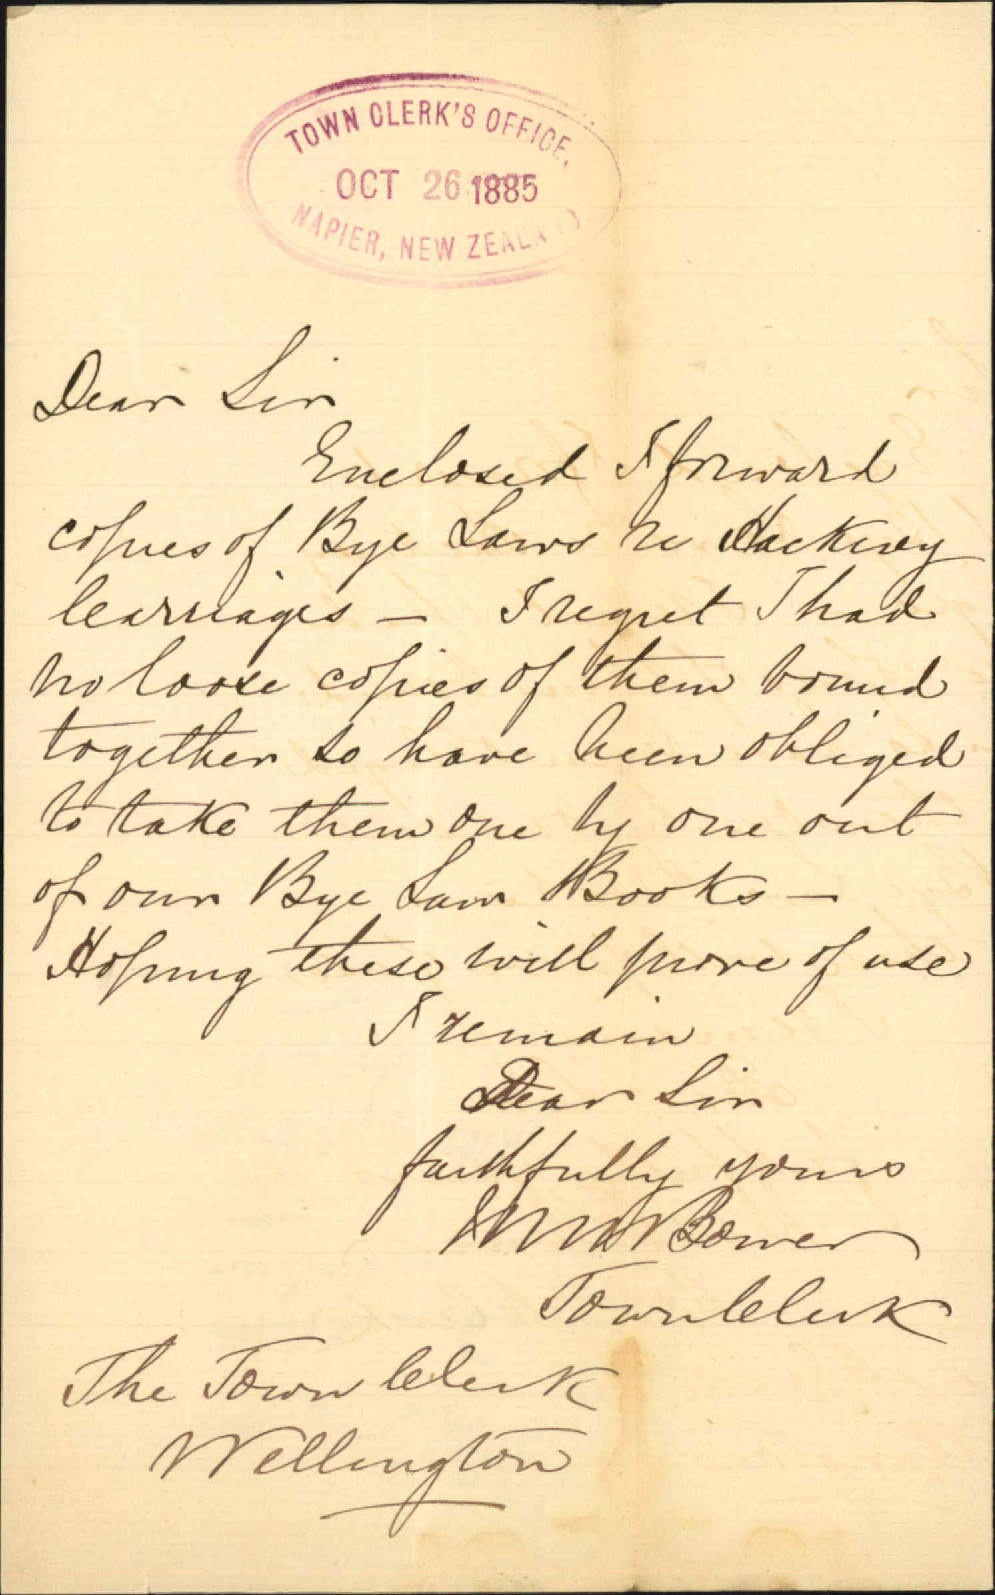 TOWN CLERK'S OFFICE,
OCT 26 1885
NAPIER, NEW ZEALAND
Dear Sir
Enclosed I forward
copies of Bye Laws re Hackney
Carriages — I regret I had
no loose copies of them bound
together so have been obliged
to take them one by one out
of our Bye Law Books —
Hoping these will prove of use
I remain
Dear Sir
faithfully yours
Bower
Town Clerk
The Town Clerk
Wellington